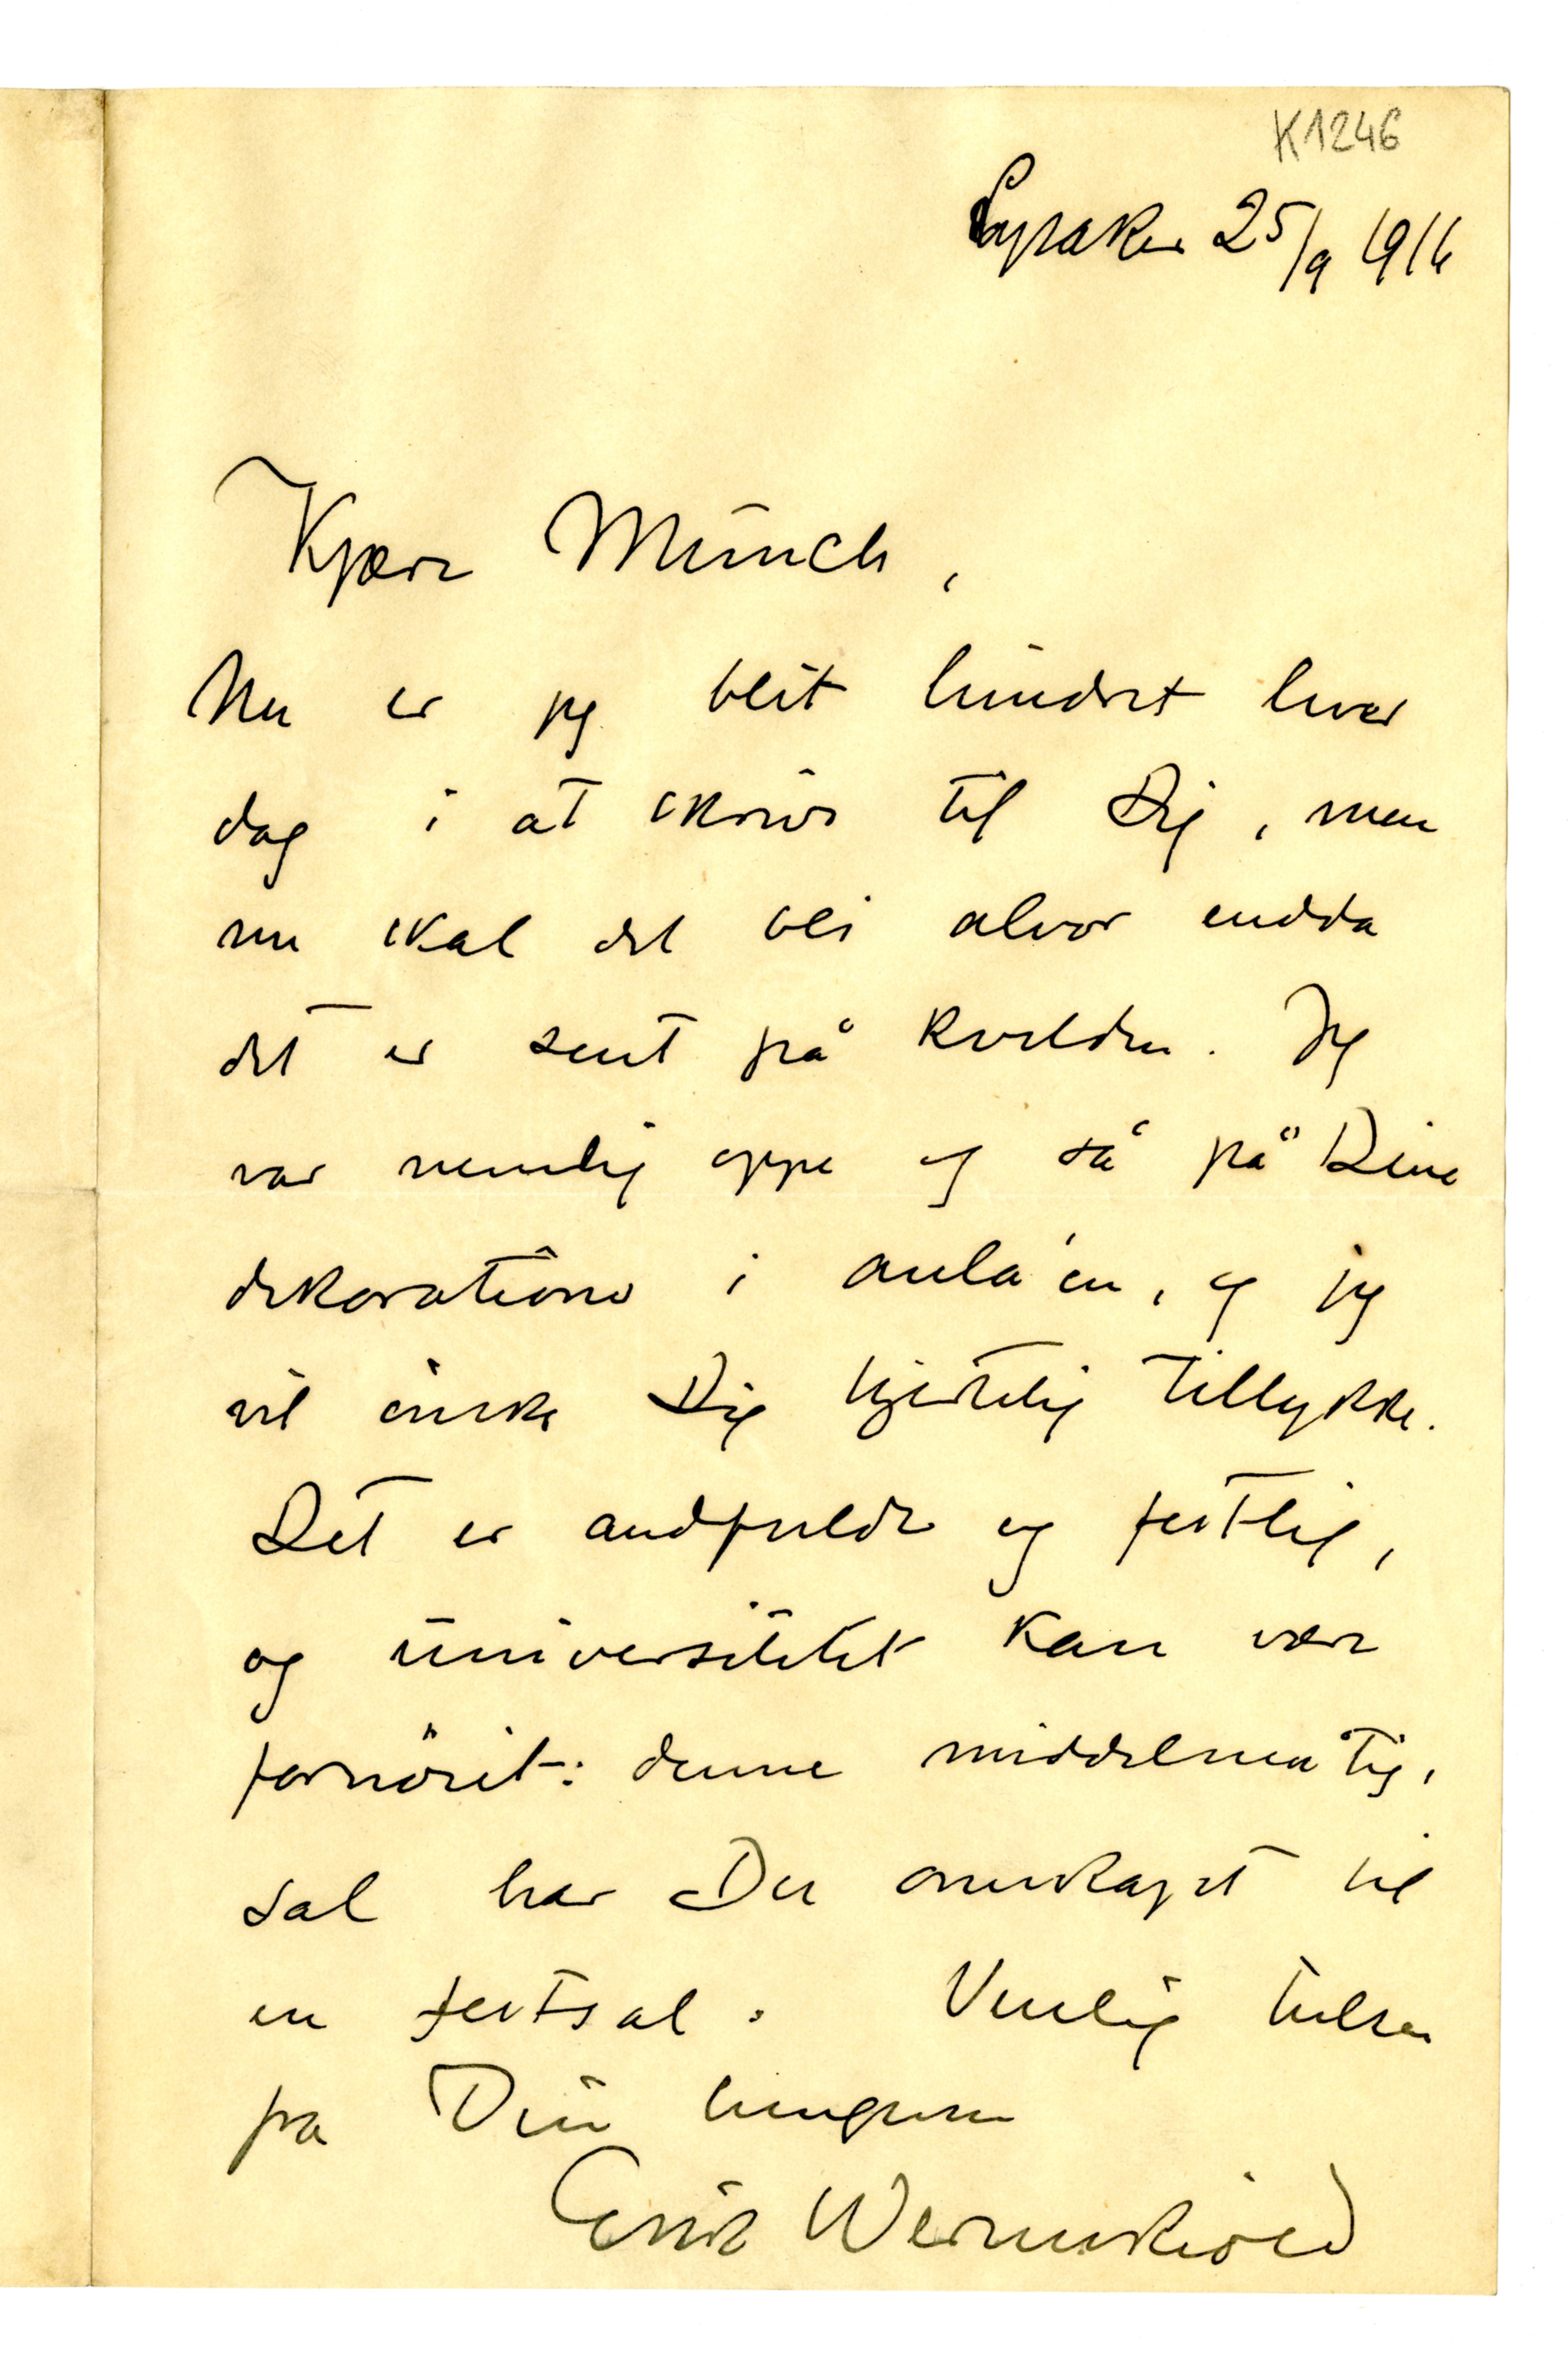 K1246
Lysaker 25/9 1916
Kjære Munch,
Nu er jeg blit hindret hver
dag i at skrive til Dig, men
nu skal det bli alvor endda
det er sent på kvelden. Jeg
var nemlig oppe og så på Dine
dekorationer i aula'en, og jeg
vil ønske Dig hjertelig tillykke.
Det er åndfuldt og festlig,
og universitetet kan være
fornöiet: denne middelmåtige
sal har Du omskapt til
en festsal. Venlig hilsen
fra Din hengivne
Erik Werenskiold